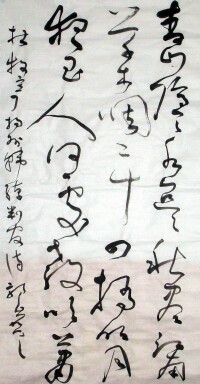 青山隐隐水迢迢秋尽江南
草木凋二十四橋明月
夜玉人何处教吹箫
杜牧寄揚州韓綽判官诗